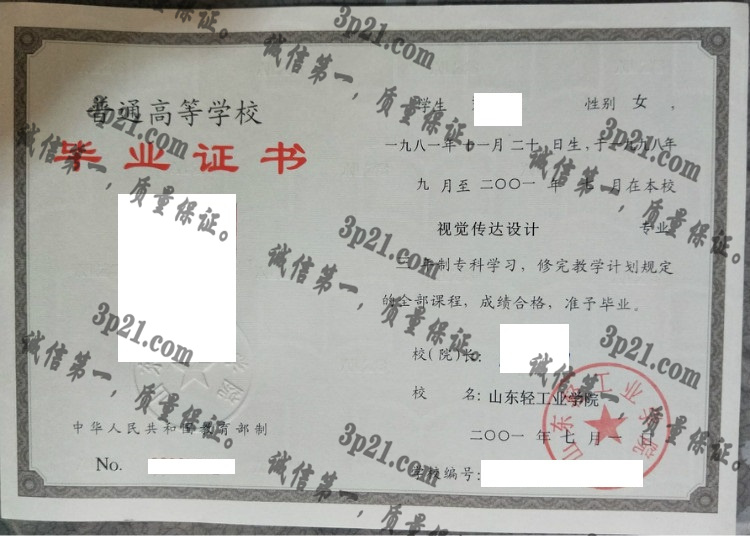 普通高等学校
毕业证书
中华人民共和国教育部制
No.
学生
性别 女 ,
一九八一年十一月二十 日生, 于一九九八年
九 月至 二〇〇一 年 七 月在本校
视觉传达设计 专业
三年制专科学习, 修完教学计划规定
的全部课程, 成绩合格, 准予毕业。
校(院)长:
校 名: 山东轻工业学院
二〇〇一 年 七 月 一 日
学校编号:
山东轻工业学院
3p21.com
诚信第一,质量保证。
3p21.com
诚信第一,质量保证。
3p21.com
诚信第一,质量保证。
3p21.com
诚信第一,质量保证。
3p21.com
诚信第一,质量保证。
3p21.com
诚信第一,质量保证。
3p21.com
诚信第一,质量保证。
质量保证。